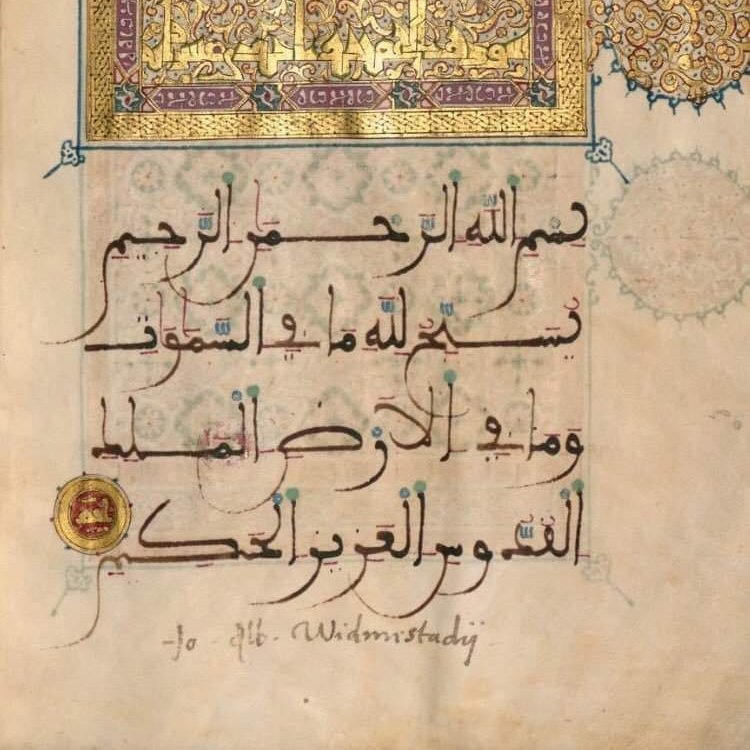 بسم الله الرحمن الرحيم
يسبح لله ما في السموات
وما في الارض الملك
القدوس العزيز الحكيم
Jo. Alb. Widmestadij